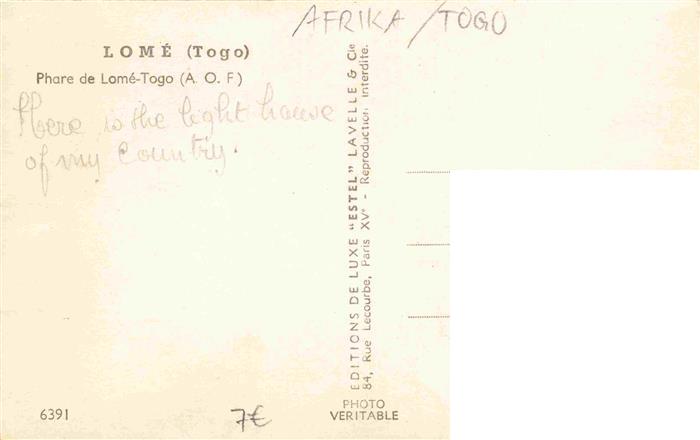 AFRIKA/TOGO
LOMÉ (Togo)
Phare de Lomé-Togo (A. O. F)
Here is the light house
of my Country.
EDITIONS DE LUXE "ESTEL" LAVELLE & Cie
84, Rue Lecourbe, Paris XVe - Reproduction interdite.
6391
7€
PHOTO
VERITABLE